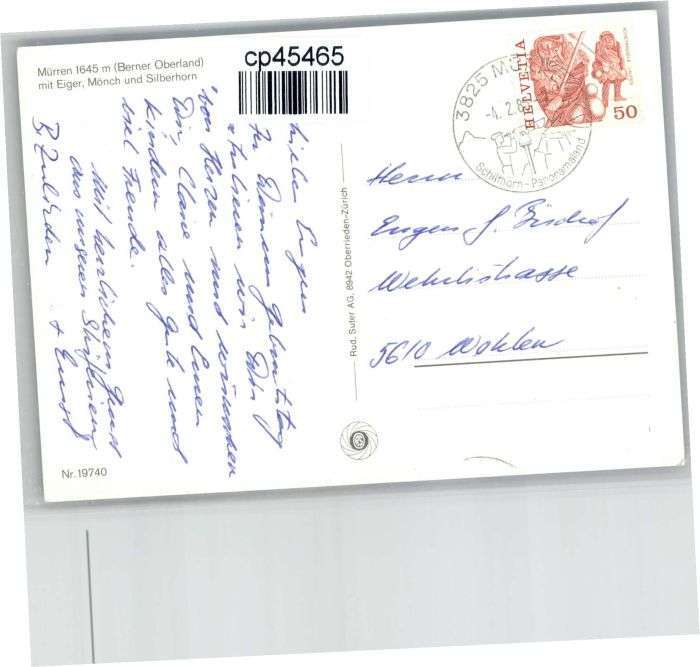 Mürren 1645 m (Berner Oberland)
mit Eiger, Mönch und Silberhorn
cp45465
3825 MÜ
-4.2.8
Schilthorn-Panoramaland
HELVETIA
50
Lieber Eugen
Zu Deinem Geburtstag
gratulieren wir Dir
von Herzen und wünschen
Dir, Claire und Euren
Kindern alles Gute und
viel Freude.
Mit herzlichem Gruss
aus unseren Skiferien
+ Ernst
Rud. Suter AG, 8942 Oberrieden-Zürich
Herrn
Eugen J. Bischof
Wehrlistrasse
5610 Wohlen
Nr. 19740